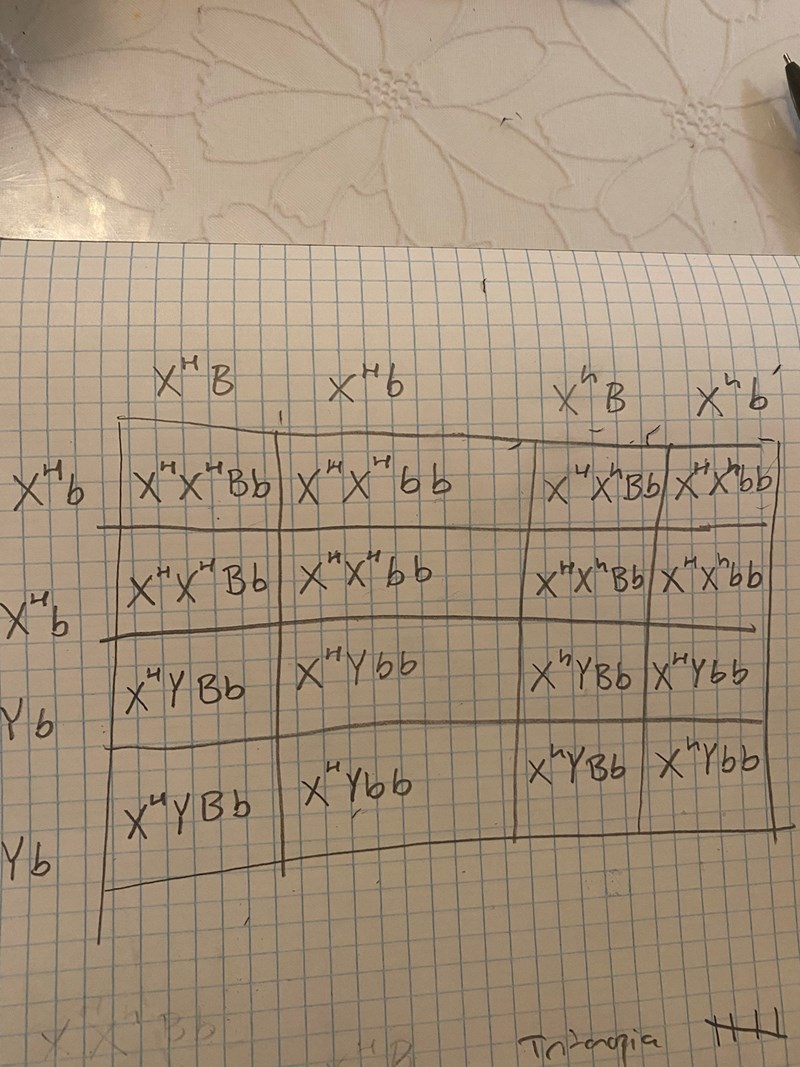 XᴴB Xᴴb XʰB Xʰb
Xᴴb XᴴXᴴBb XᴴXᴴbb XᴴXʰBb XᴴXʰbb
Xᴴb XᴴXᴴBb XᴴXᴴbb XᴴXʰBb XᴴXʰbb
Yb XᴴYBb XᴴYbb XʰYBb XᴴYbb
Yb XᴴYBb XᴴYbb XʰYBb XʰYbb
Tritanopia